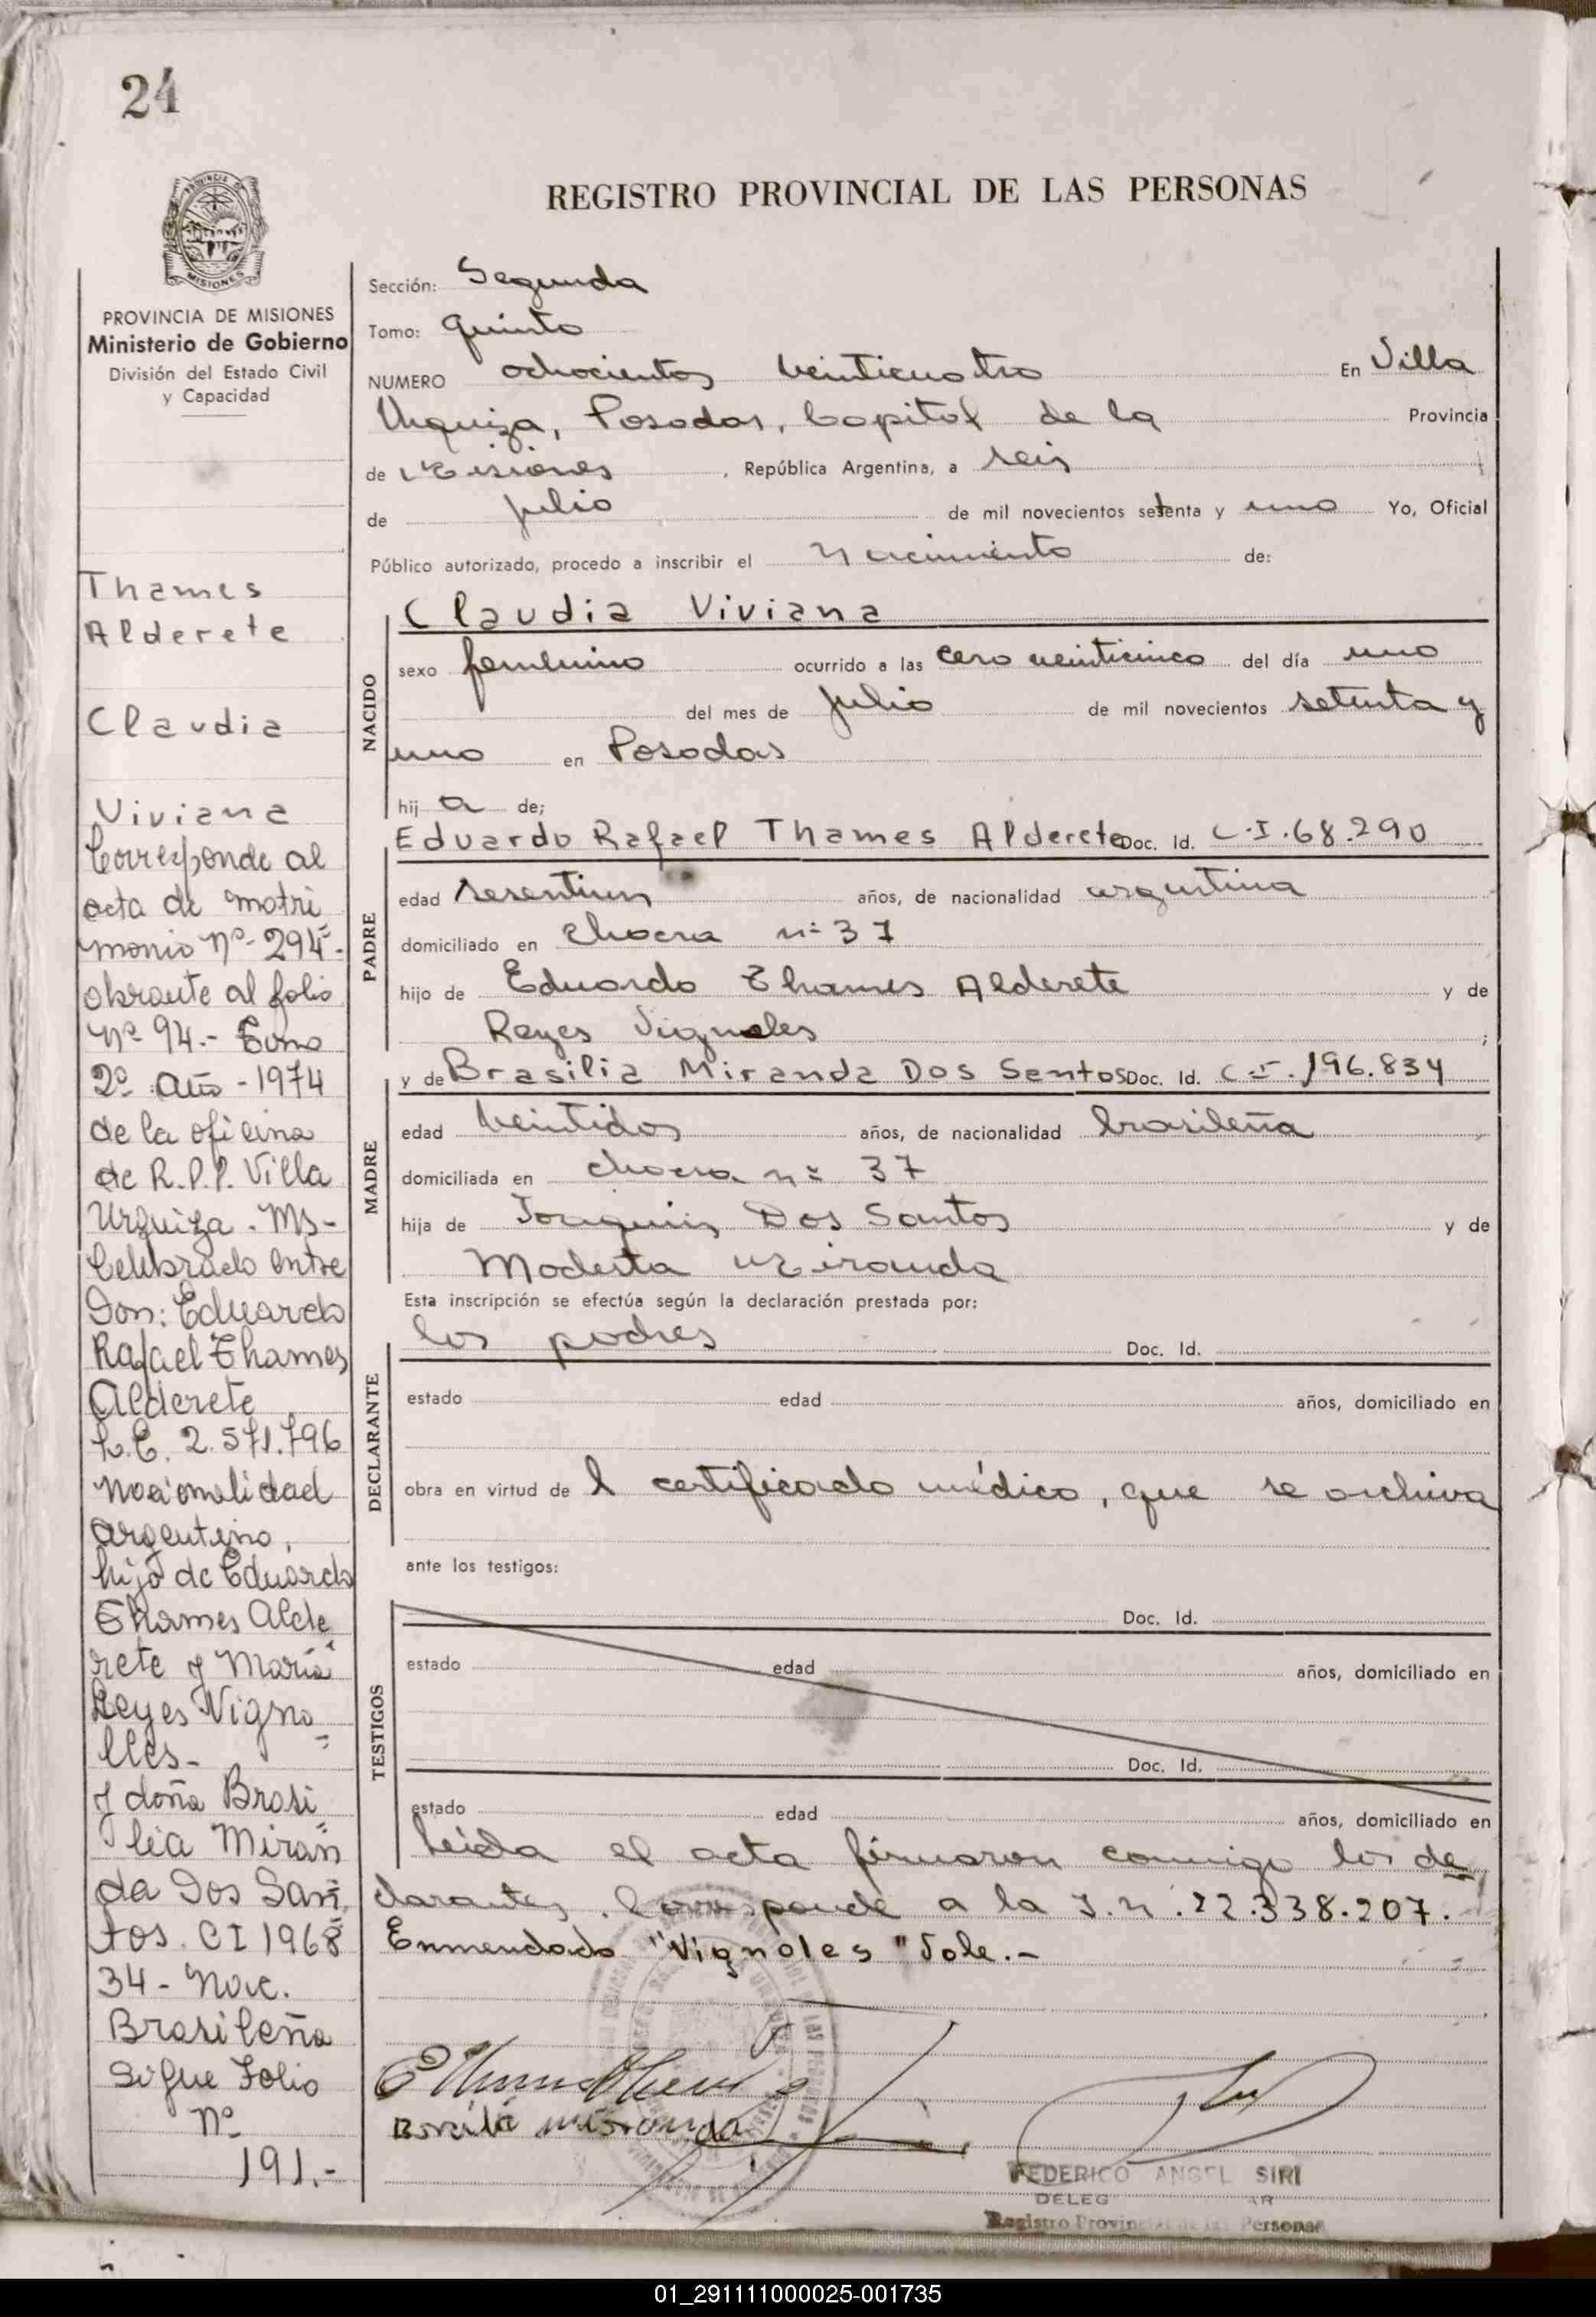 24
REGISTRO PROVINCIAL DE LAS PERSONAS
MISIONES
PROVINCIA DE MISIONES
Ministerio de Gobierno
División del Estado Civil
y Capacidad
Thames
Alderete
Claudia
Viviana
Corresponde al
acta de matri
monio Nº 294-
obrante al folio
Nº 94.- Tomo
2º Año - 1974
de la oficina
de R.P.P. Villa
Urquiza. Ms-
Celebrado entre
Don: Eduardo
Rafael Thames
Alderete
L.E. 2.571.796
Nacionalidad
argentino,
hijo de Eduardo
Thames Alde
rete y María
Reyes Vigno
lles-
y doña Brasi
lia Miran
da Dos San
tos. CI 1968
34 - Nac.
Brasileña
Sigue Folio
Nº
191.-
Sección: Segunda
Tomo: quinto
NUMERO ochocientos veinticuatro En Villa
Urquiza, Posadas, Capital de la Provincia
de Misiones, República Argentina, a seis
de julio de mil novecientos setenta y uno Yo, Oficial
Público autorizado, procedo a inscribir el nacimiento de:
NACIDO
Claudia Viviana
sexo femenino ocurrido a las cero veinticinco del día uno
del mes de julio de mil novecientos setenta y
uno en Posadas
hij a de;
PADRE
Eduardo Rafael Thames Alderete Doc. Id. C.I.68.290
edad sesentiun años, de nacionalidad argentina
domiciliado en chacra nº 37
hijo de Eduardo Thames Alderete y de
Reyes Vignoles;
MADRE
y de Brasilia Miranda Dos Santos Doc. Id. C.I.196.834
edad veintidos años, de nacionalidad brasileña
domiciliada en chacra nº 37
hija de Joaquin Dos Santos y de
Modesta Miranda
Esta inscripción se efectúa según la declaración prestada por:
DECLARANTE
los padres Doc. Id.
estado edad años, domiciliado en
obra en virtud de l certificado médico, que se archiva
ante los testigos:
TESTIGOS
Doc. Id.
estado edad años, domiciliado en
Doc. Id.
estado edad años, domiciliado en
Leída el acta firmaron conmigo los de
clarantes. Corresponde a la I.N. 22.338.207.
Enmendado "Vignoles" Vale.-
FEDERICO ANGEL SIRI
Registro Provincial de las Personas
01_291111000025-001735